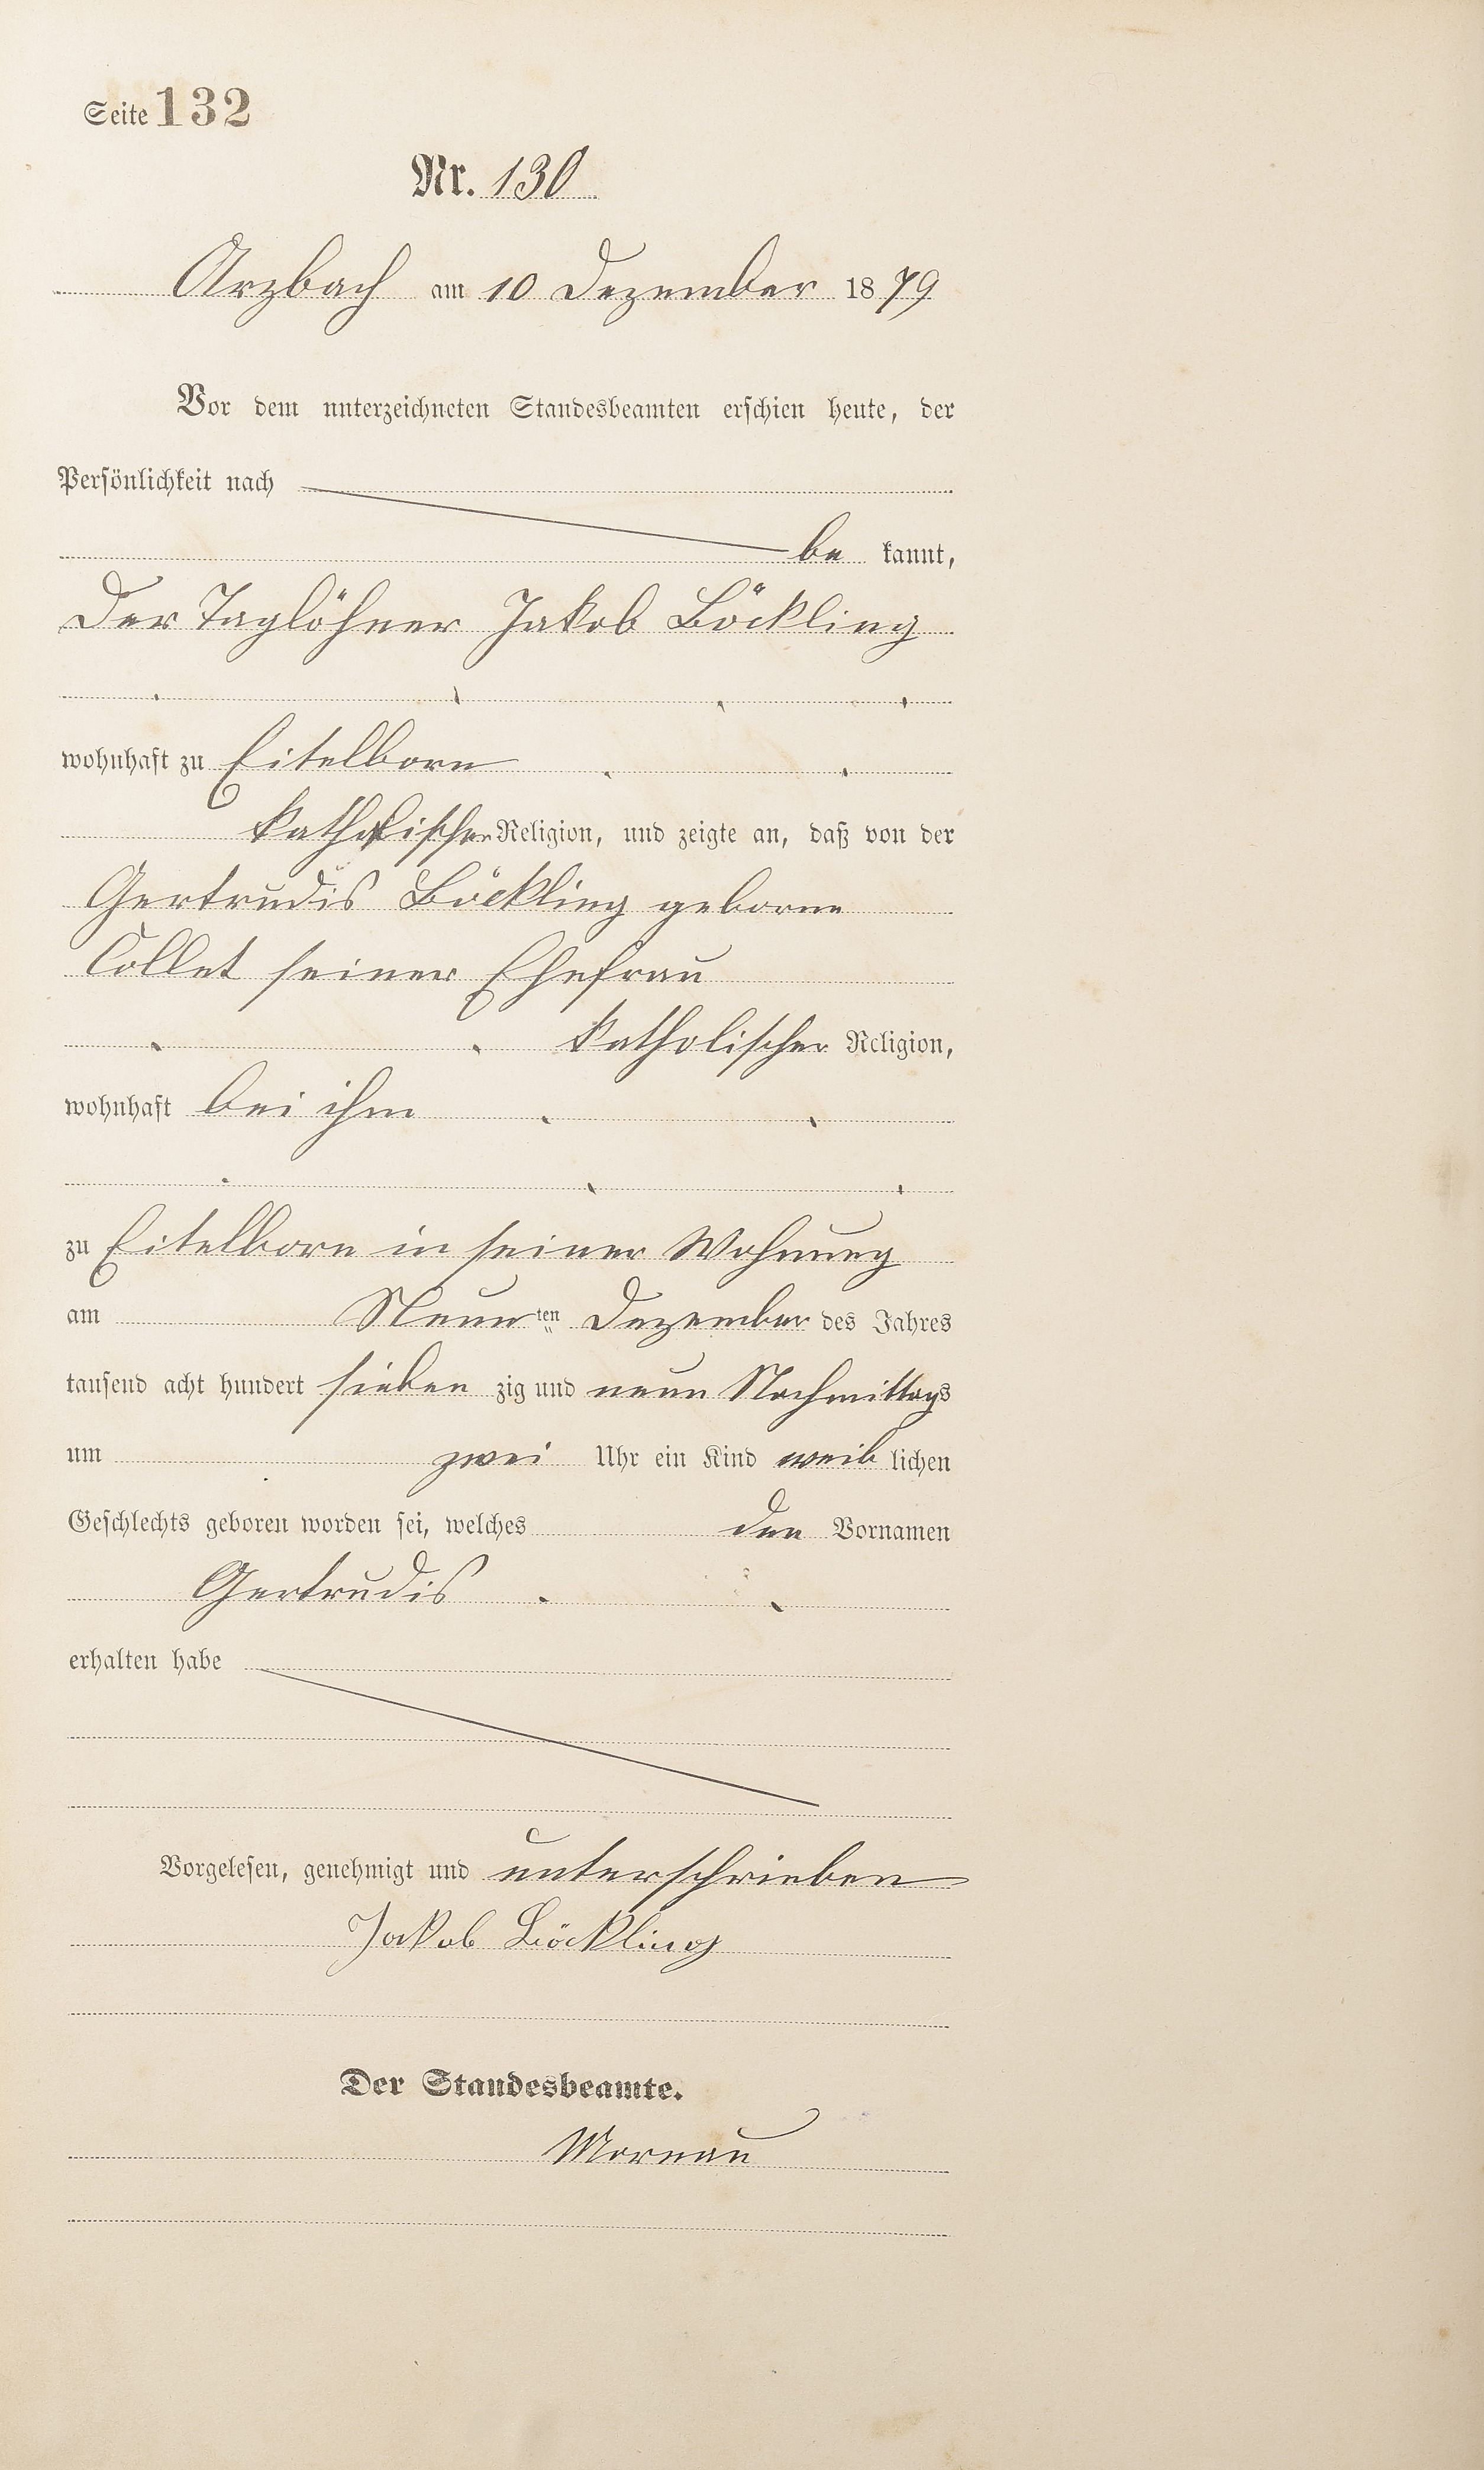 Seite 132
Nr. 130
Arzbach am 10 Dezember 1879
Vor dem unterzeichneten Standesbeamten erschien heute, der
Persönlichkeit nach
be kannt,
der Taglöhner Jakob Böckling
wohnhaft zu Eitelborn
katholischer Religion, und zeigte an, daß von der
Gertrudis Böckling geborne
Collet seiner Ehefrau
katholischer Religion,
wohnhaft bei ihm
zu Eitelborn in seiner Wohnung
am Neun ten Dezember des Jahres
tausend acht hundert sieben zig und neun Nachmittags
um zwei Uhr ein Kind weib lichen
Geschlechts geboren worden sei, welches den Vornamen
Gertrudis
erhalten habe
Vorgelesen, genehmigt und unterschrieben
Jakob Böckling
Der Standesbeamte.
Mornau